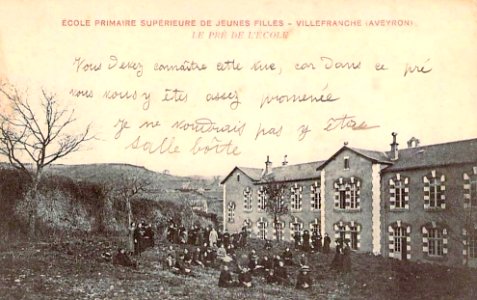 ÉCOLE PRIMAIRE SUPÉRIEURE DE JEUNES FILLES - VILLEFRANCHE (AVEYRON)
LE PRÉ DE L'ÉCOLE
Vous devez connaître cette vue, car dans ce pré
vous vous y êtes assez promenée
Je ne voudrais pas y être
salle boîte